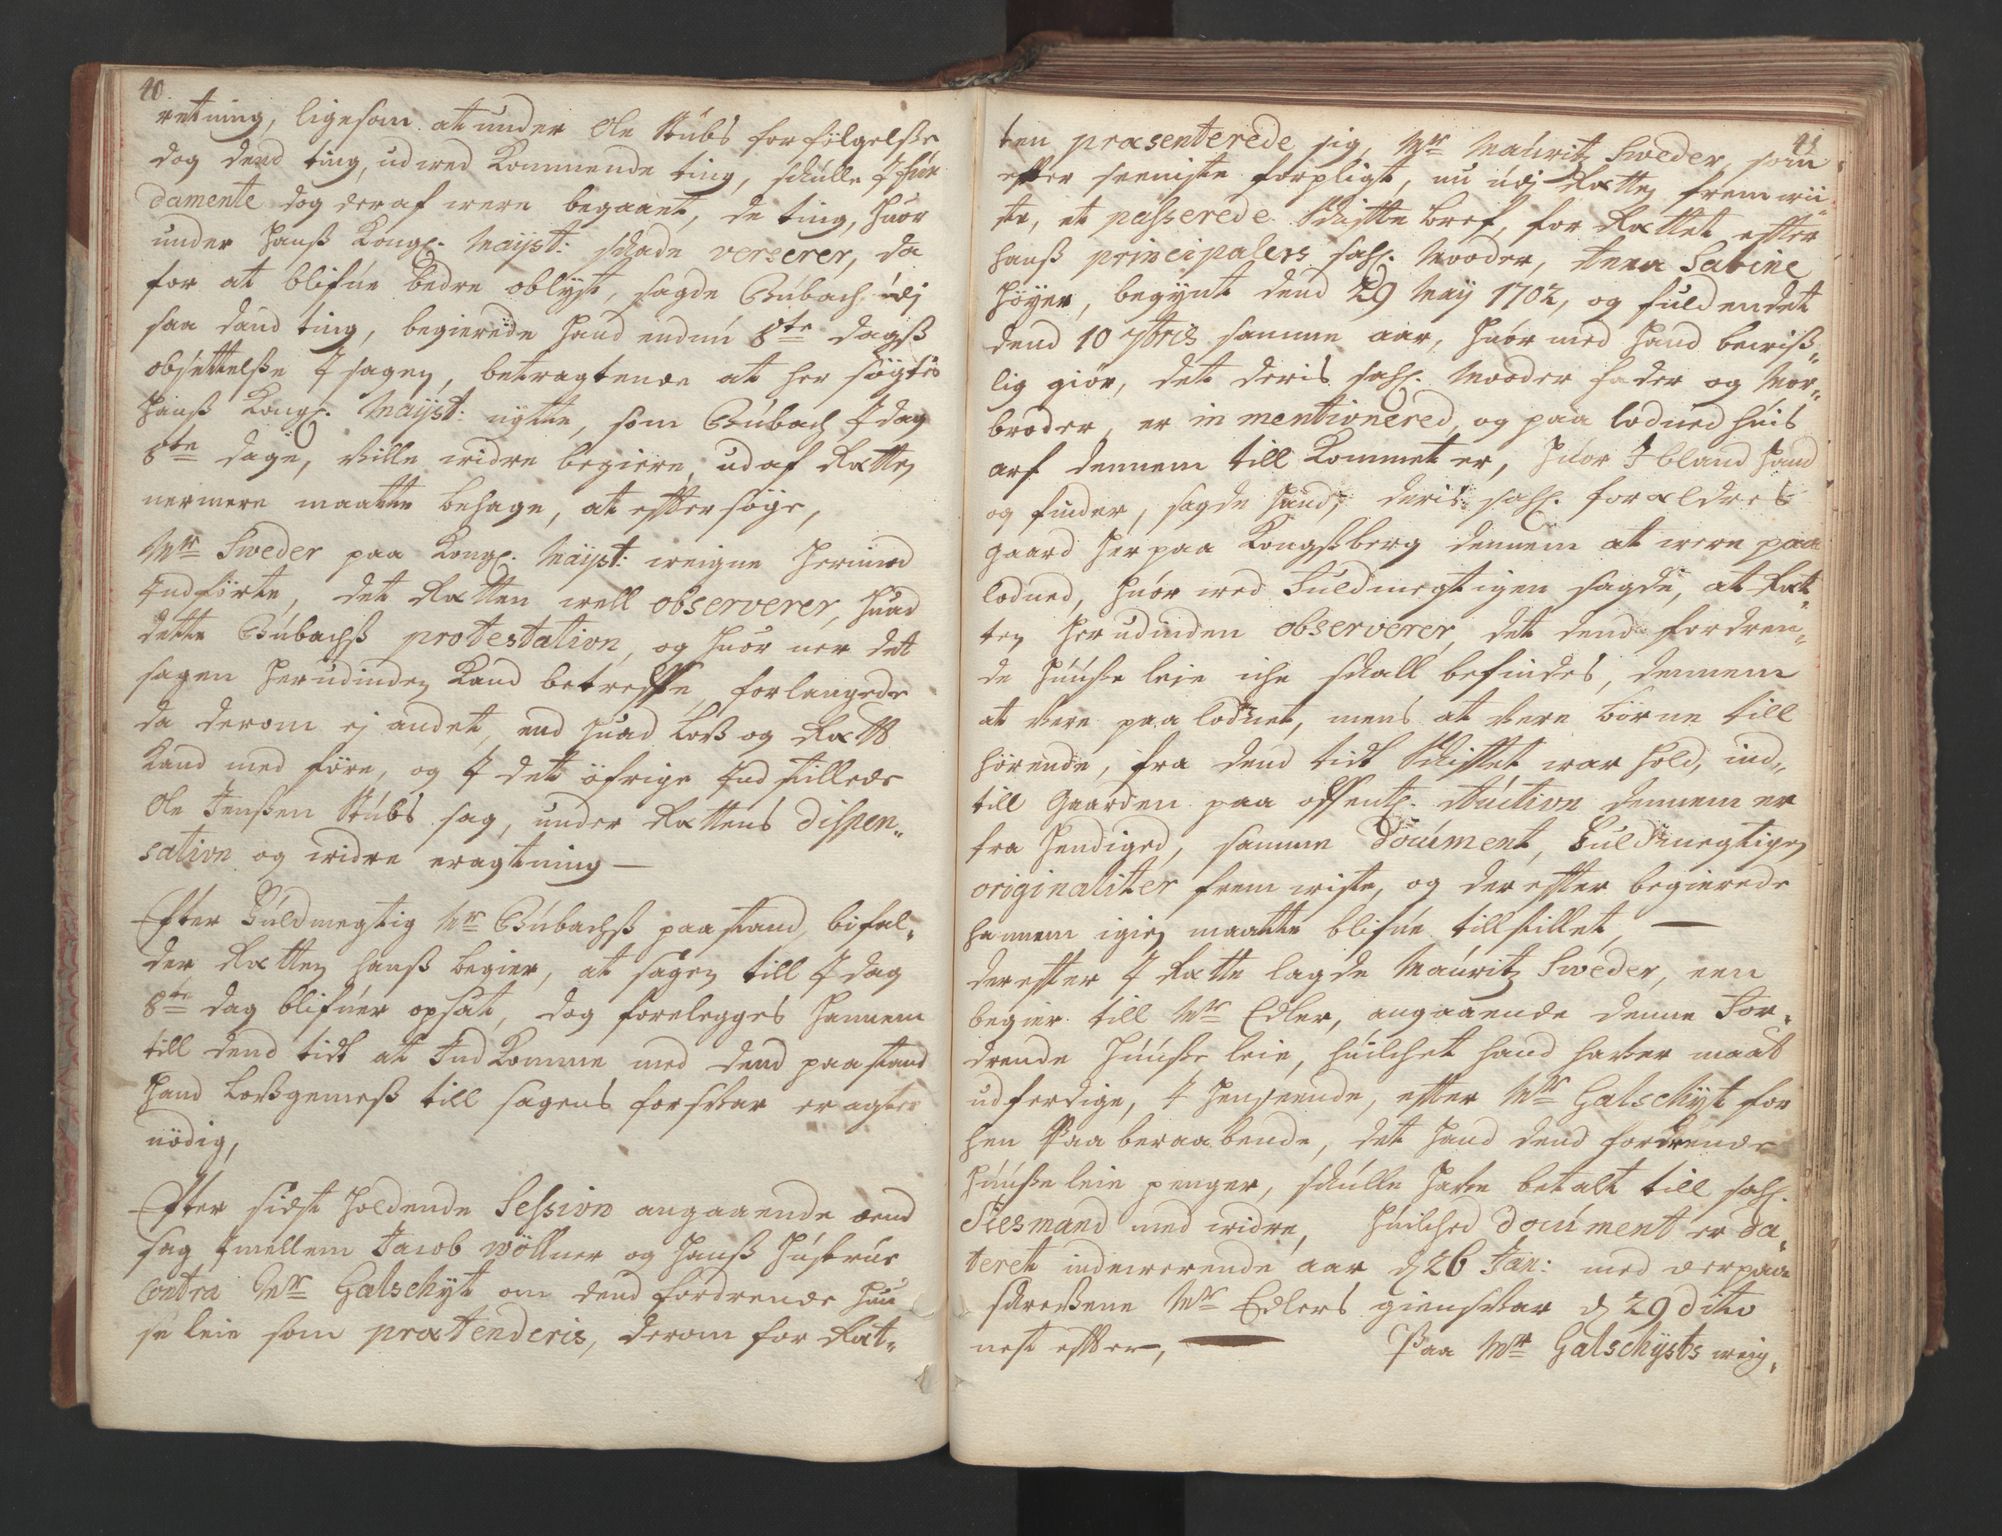 40.
retning, ligesom at under Ole Stubs forfölgelße
dog dend ting, ud ved Kommende ting, skulle
damente dog deraf were begaaet, de ting, huor
under hanß Kongl. Mayst: skade verserer, da
for at blifue bedre oplyst, sagde Bubach, udj
saa dand ting, begierede hand endnu 8te dags
obsettelße I sagen, betragtende at her søgtes
hanß Kongl. Mayst: nytte, som Bubach I dag
8te dage, ville widre begiere, ud af Rætten
nermere maatte behage, at eftersöge,
Mr Sweder paa Kongl. Mayst: weigne herimod
Indförte, det Rætten well observerer, huad
dette Bubachß protestation, og huor ner det
sagen herudinden Kand betreffe, forlangede
da derom ej andet, end huad Loß og Rætt
Kand med före, og I det öfrige Indstillede
Ole Jenßen Stubs sag, under Rættens dispen„
sation og widre eragtning —
Efter Fuldmegtig Mr Bubachß paastand, bifal„
der Rætten hanß begier, at sagen till I dag
8te dag blifuer opsat, dog forelegges hannem
till dend tidt at Ind Komme med dend paastand
hand Loßgemeß till sagens forsvar eragter
nödig,
Efter sidst holdende Session angaaende
sag Imellem Jacob Wöllner og hanß hustrue
Contra Mr Galschyt om dend fordrende huu
se leie som prætenderis, derom for Ræt„
41
ten præsenterede sig, Mr Mauritz Sweder, som
efter seeniste forpligt, nu udj Rætten fremwii„
ste, et passerede Skiftte bref, for Rættet efter
hanß principalers sahl. Mooder, Anna Sabine
Höyer, begynt dend 29 May 1702, og fuldendet
dend 10 7bris samme aar, huor med hand bewiß„
lig giör, det deris sahl. Mooder fader og Mor„
broder, er in mentionered, og paa lodned huis
arf dennem till Kommet er, huor Ibland hand
og finder, sagde hand, deris sahl. foraeldres
gaard her paa Kongßberg dennem at were paa
lodned, huor wed Fuldmegtigen sagde, at Ræt„
ten herudinden observerer, det dend fordren„
de huuße leie icke skall befindes, dennem
at være paa lodnet, mens at være börne till
hörende, fra dend tidt Skifttet war hold, ind„
till Gaarden paa offentl. Auction dennem er
fra hendiged, samme document, Fuldmegtigen
originaliter fremwiste, og der efter begierede
hannem igien maatte blifue tillstillet, —
derefter I Rætte lagde Mauritz Sweder, een
begier till Mr Edler, angaaende denne For„
drende huuße leie, huilchet hand hafver maat
udferdige, I henseende, efter Mr Galschyt for
hen Paaberaabende, det hand dend fordrende
huuße leie penger, skulle have betalt till sahl.
Siesmand med widre, huilched document er da„
teret inderwerende aar d 26 Jan: med derpaa
skrefvene Mr Edlers giensvar d 29 dito
nest efter, — Paa Mr Galschyts weig„